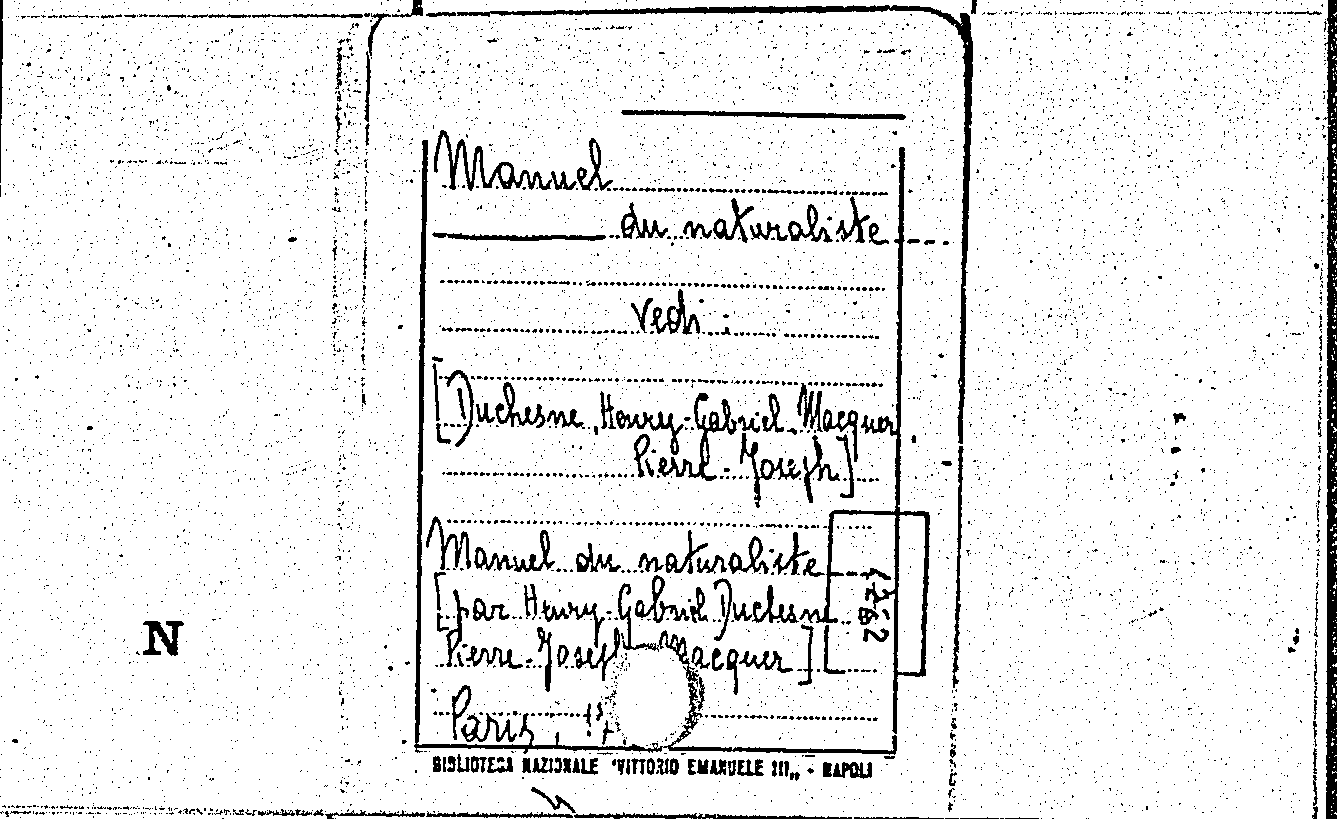 Manuel
du naturaliste
vedi :
[Duchesne, Henry-Gabriel. Macquer
Pierre-Joseph]
Manuel du naturaliste
[par Henry-Gabriel Duchesne
Pierre-Joseph Macquer]
Paris,
BIBLIOTECA NAZIONALE "VITTORIO EMANUELE III„ - NAPOLI
N